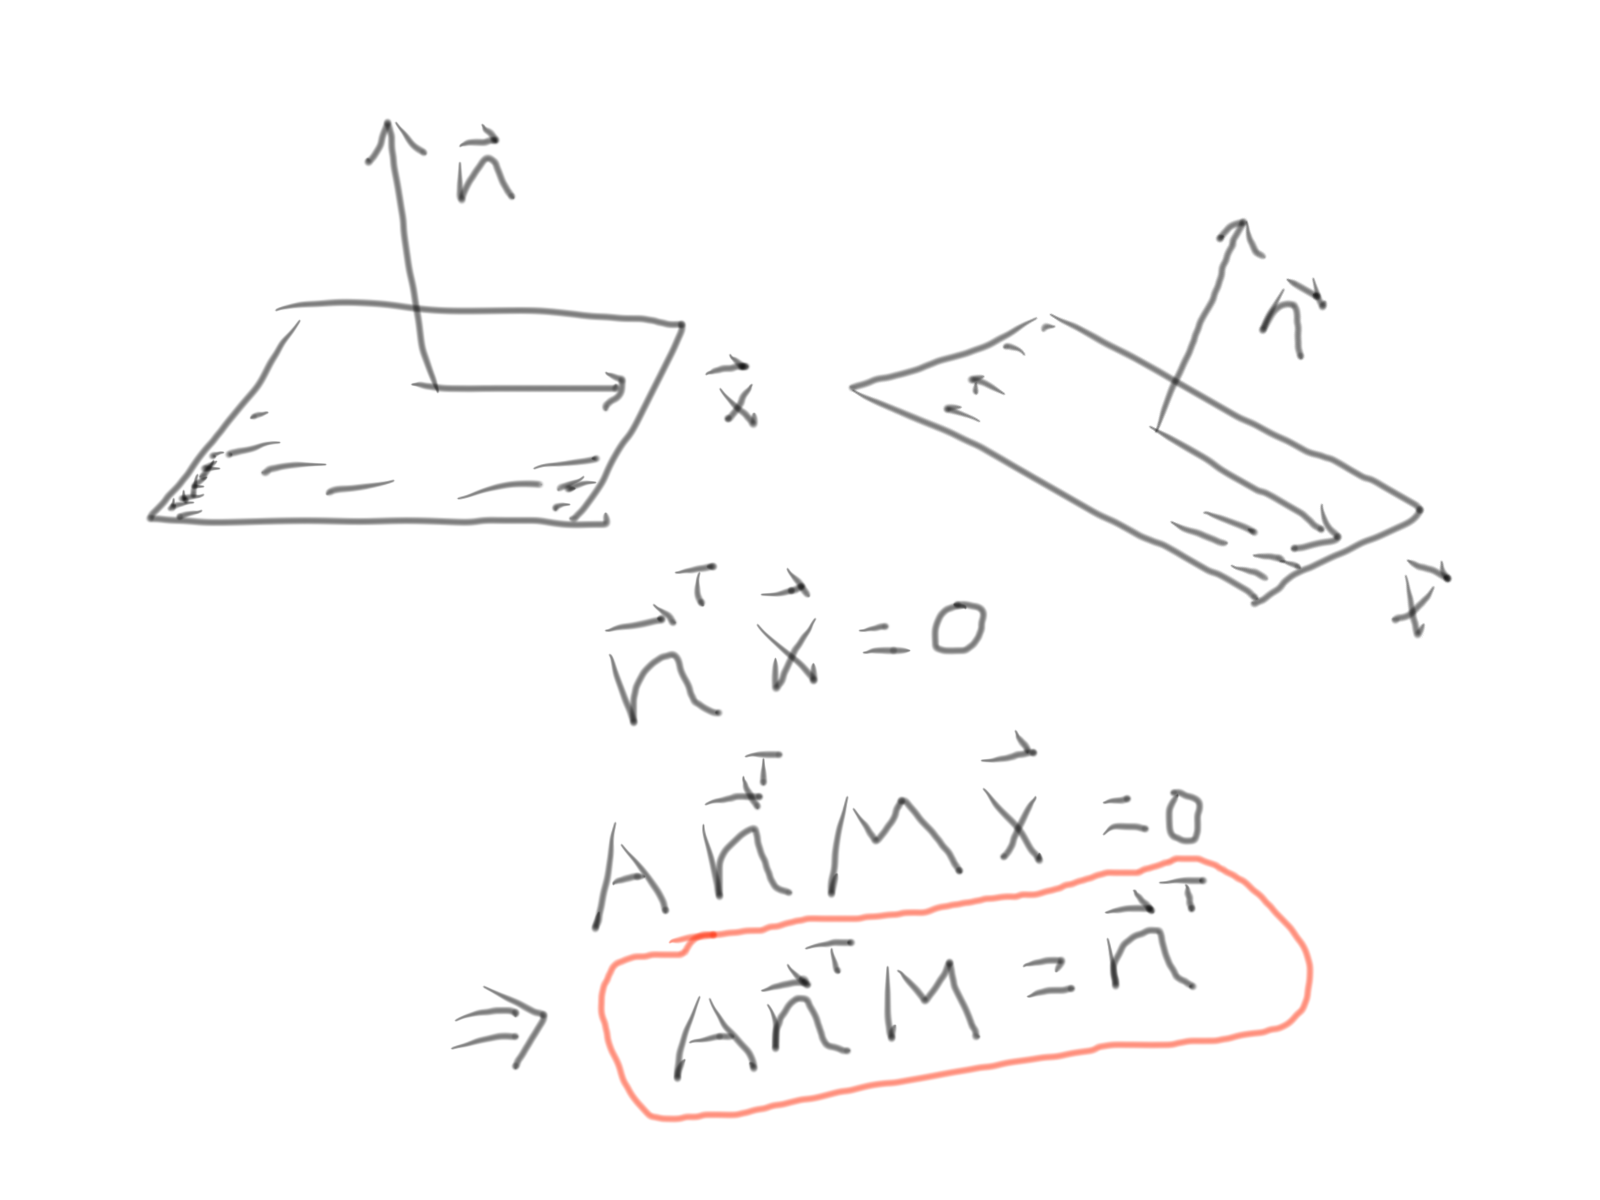 n⃗
n⃗
x⃗
x⃗
n⃗ᵀ x⃗ = 0
A n⃗ᵀ M x⃗ = 0
⇒ A n⃗ᵀ M = n⃗ᵀ